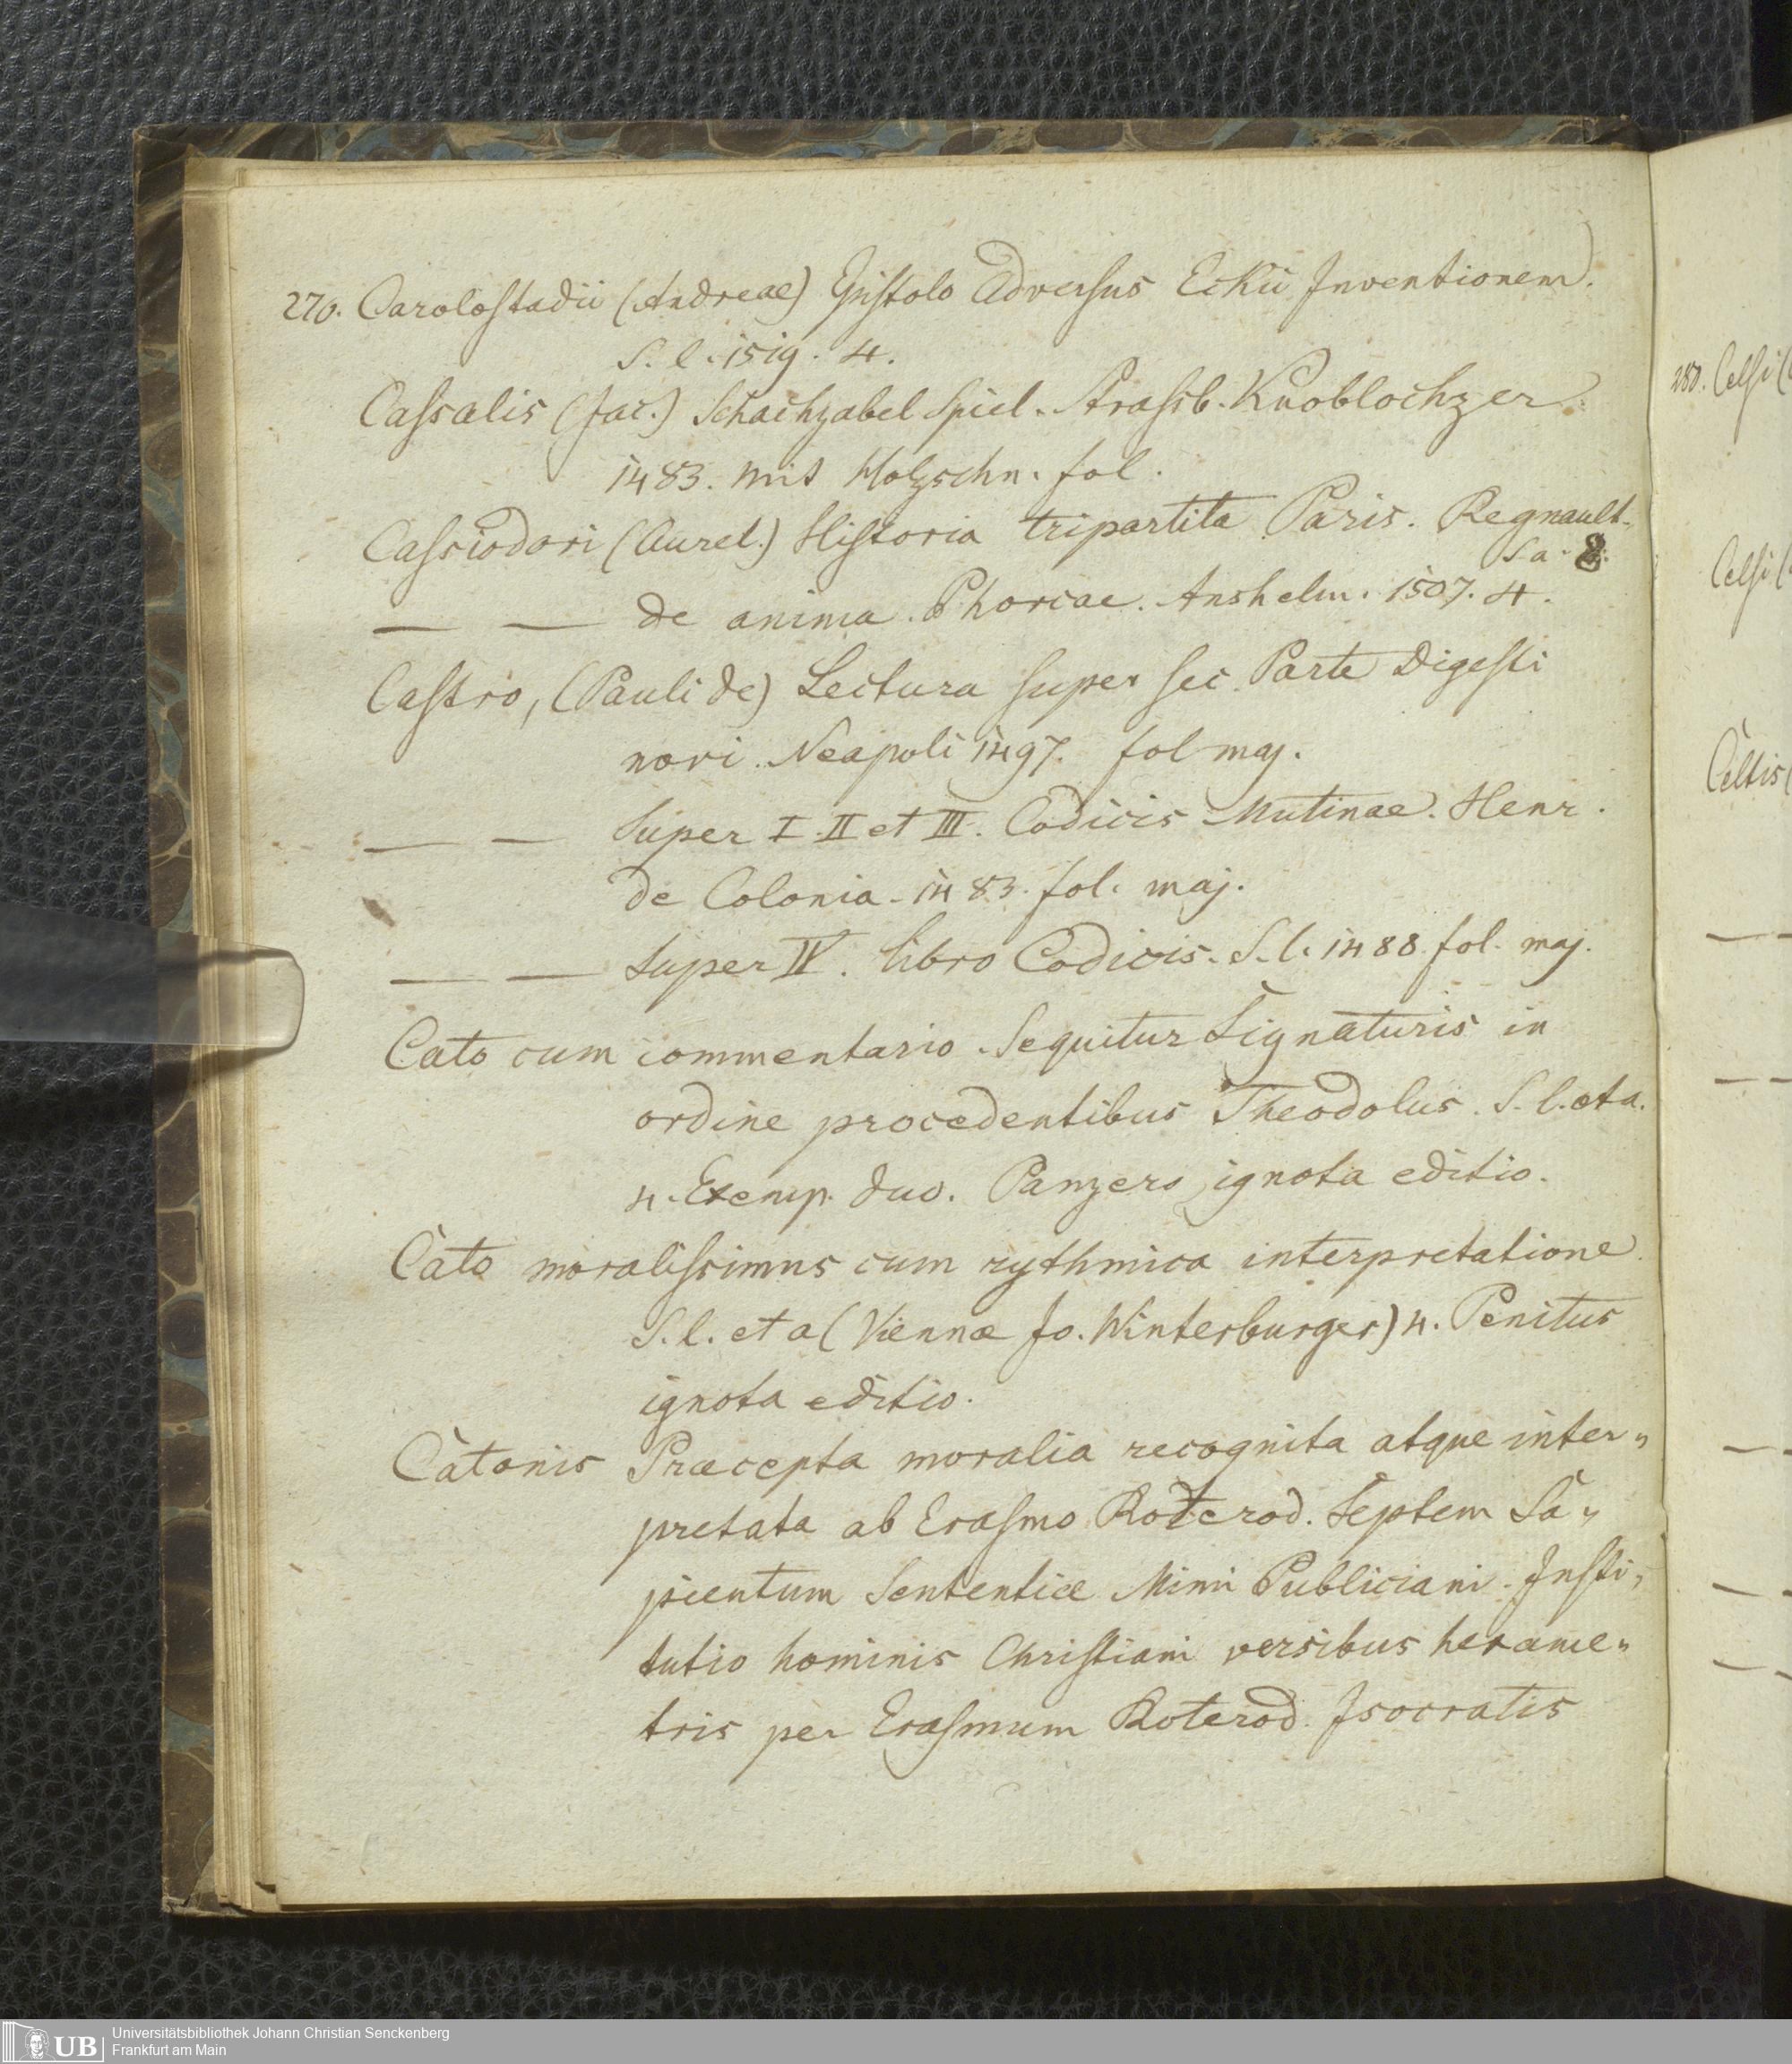 270. Carolostadii (Andreae) Epistola Adversus Eckii Inventionem.
S. l. 1519. 4.
Cassalis (Jac.) Schachzabel Spiel. Strassb. Knoblochzer
1483. mit Holzschn. fol.
Cassiodori (Aurel.) Historia tripartita Paris. Regnault.
S a. 8.
— — de anima. Phorcae. Anshelm. 1507. 4.
Castro, (Pauli de) Lectura super sec. Parte Digesti
novi. Neapoli 1497. fol maj.
— — Super I. II et III. Codicis Mutinae. Henr.
de Colonia. 1483. fol. maj.
— — Super IV. libro Codicis. S. l. 1488. fol. maj.
Cato cum commentario. Sequitur Signaturis in
ordine procedentibus Theodolus. S. l. et a.
4. Exemp. duo. Panzero ignota editio.
Cato moralissimus cum rythmica interpretatione
S. l. et a (Viennæ Jo. Winterburger) 4. Penitus
ignota editio.
Catonis Præcepta moralia recognita atque inter„
pretata ab Erasmo Roterod. Septem Sa„
pientum Sententiæ Mimi Publiciani. Insti„
tutio hominis Christiani versibus hexame„
tris per Erasmum Roterod. Isocratis
280. Celsi (
Celsi (
Celtis (
Universitätsbibliothek Johann Christian Senckenberg
UB Frankfurt am Main